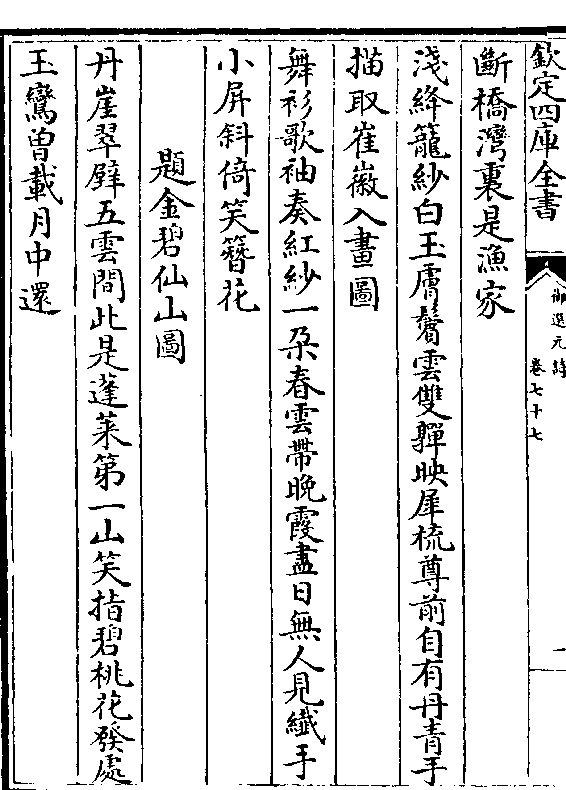 欽定四庫全書
御選元詩
卷七十七
一
斷橋灣裏是漁家
淺絳籠紗白玉膚鬢雲雙嚲映犀梳尊前自有丹青手
描取崔徽入畫圖
舞衫歌袖奏紅紗一朶春雲帶晚霞盡日無人見纖手
小屏斜倚笑簪花
題金碧仙山圖
丹崖翠壁五雲間此是蓬萊第一山笑指碧桃花發處
玉鸞曾載月中還